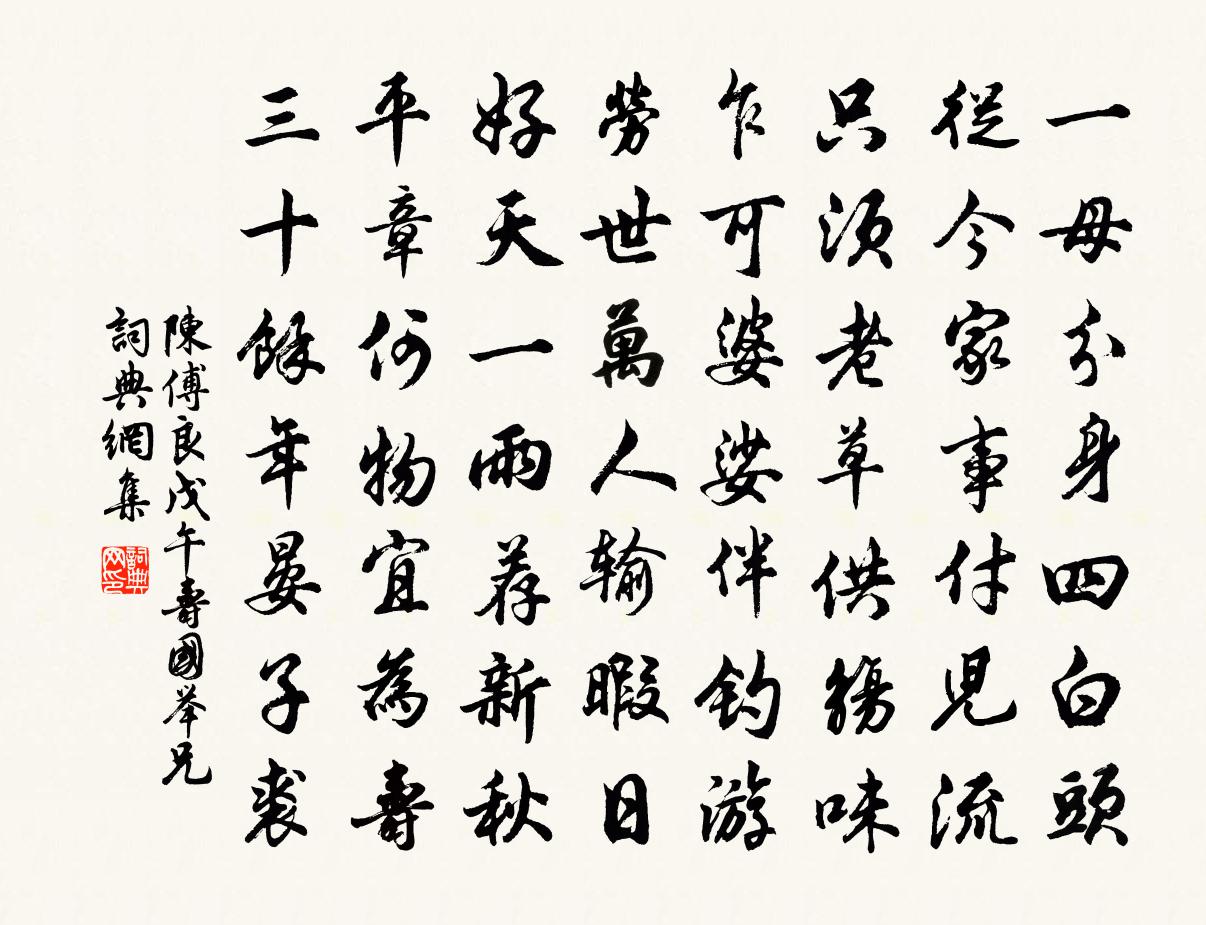 一母分身四白頭
從今家事付兒流
只須老草供觴味
乍可婆娑伴釣游
勞世萬人輸暇日
好天一雨荐新秋
平章何物宜為壽
三十餘年晏子裘
陳傅良戊午壽國举兄
詞典網集
詞典网印